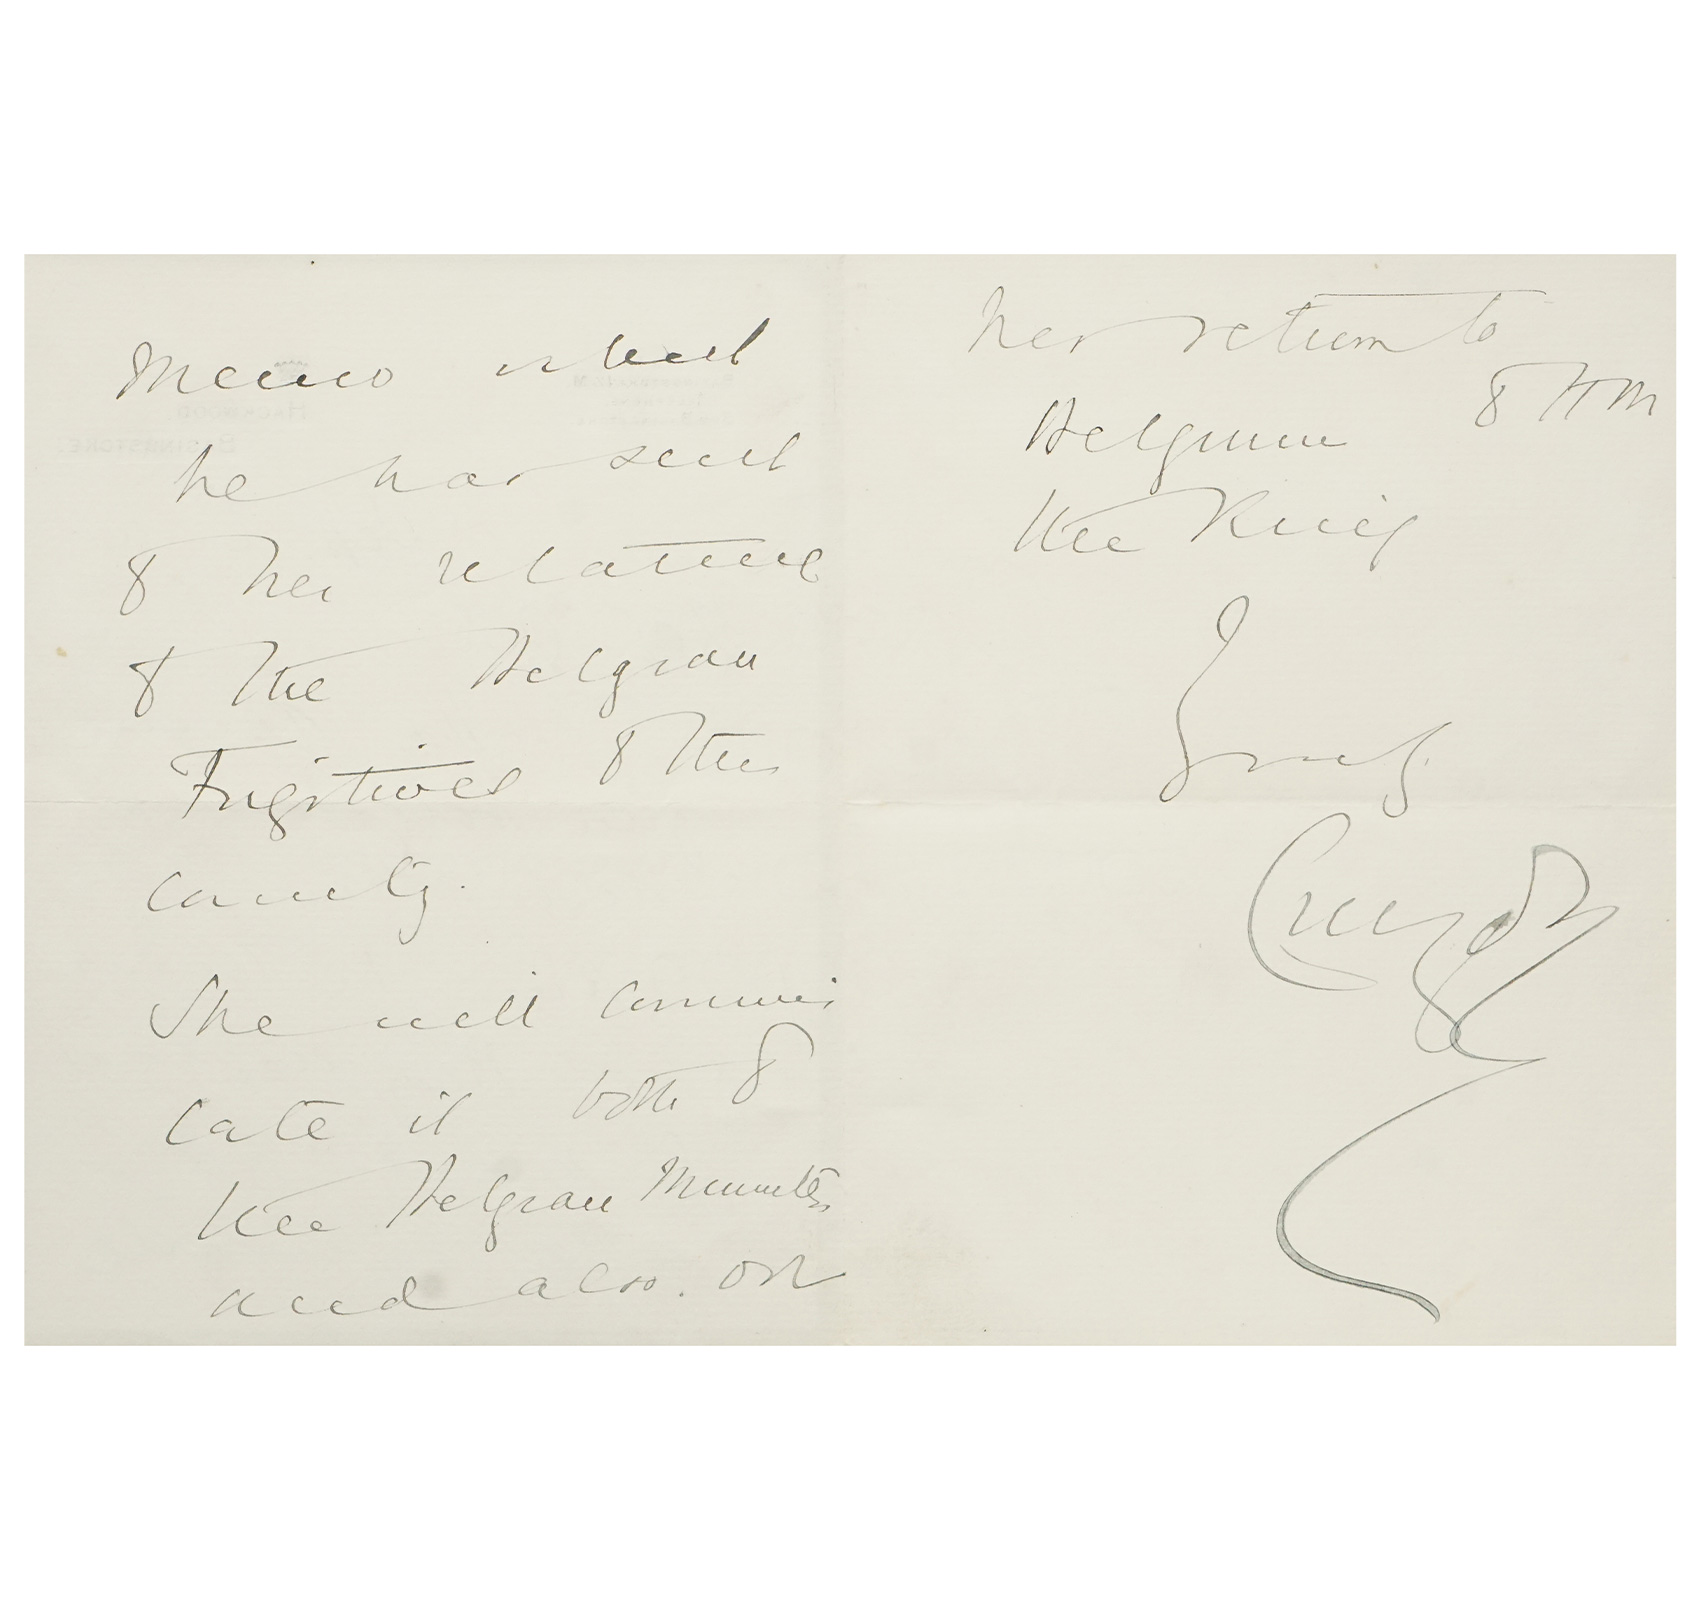 Memo which
he has sent
to her relating
to the Belgian
Fugitives to this
country.
She will communi
cate it both to
the Belgian Minister
and also. on
her return to
Belgium to HM
the King
Yours
Curzon
HACKWOOD.
BASINGSTOKE.